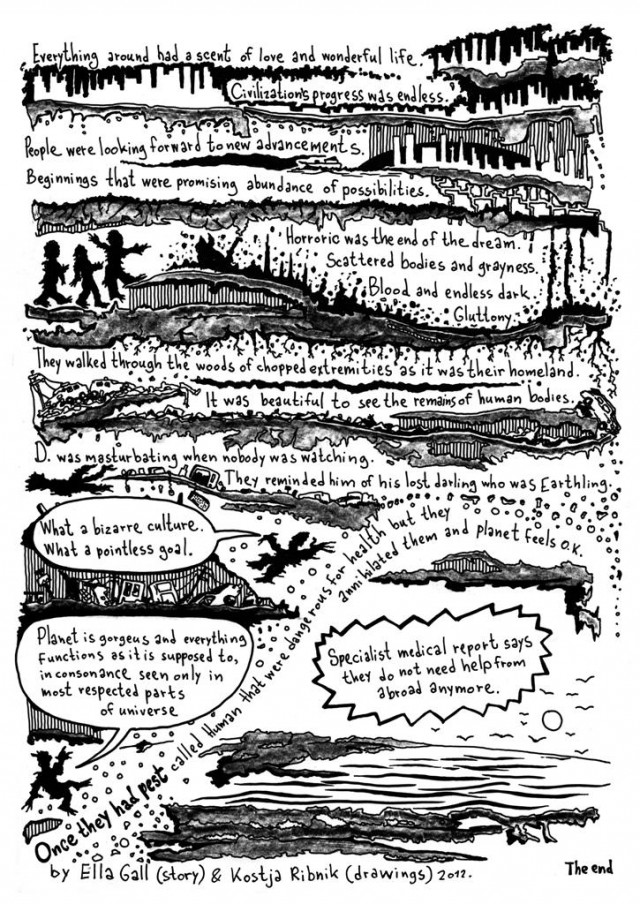 Everything around had a scent of love and wonderful life.
Civilization's progress was endless.
People were looking forward to new advancements.
Beginnings that were promising abundance of possibilities.
Horroric was the end of the dream.
Scattered bodies and grayness.
Blood and endless dark.
Gluttony.
They walked through the woods of chopped extremities as it was their homeland.
It was beautiful to see the remains of human bodies.
D. was masturbating when nobody was watching.
They reminded him of his lost darling who was Earthling.
What a bizarre culture.
What a pointless goal.
Planet is gorgeus and everything
functions as it is supposed to,
in consonance seen only in
most respected parts
of universe
Once they had pest called Human that were dangerous for health but they
annihilated them and planet feels O.K.
Specialist medical report says
they do not need help from
abroad anymore.
by Ella Gall (story) & Kostja Ribnik (drawings) 2012.
The end